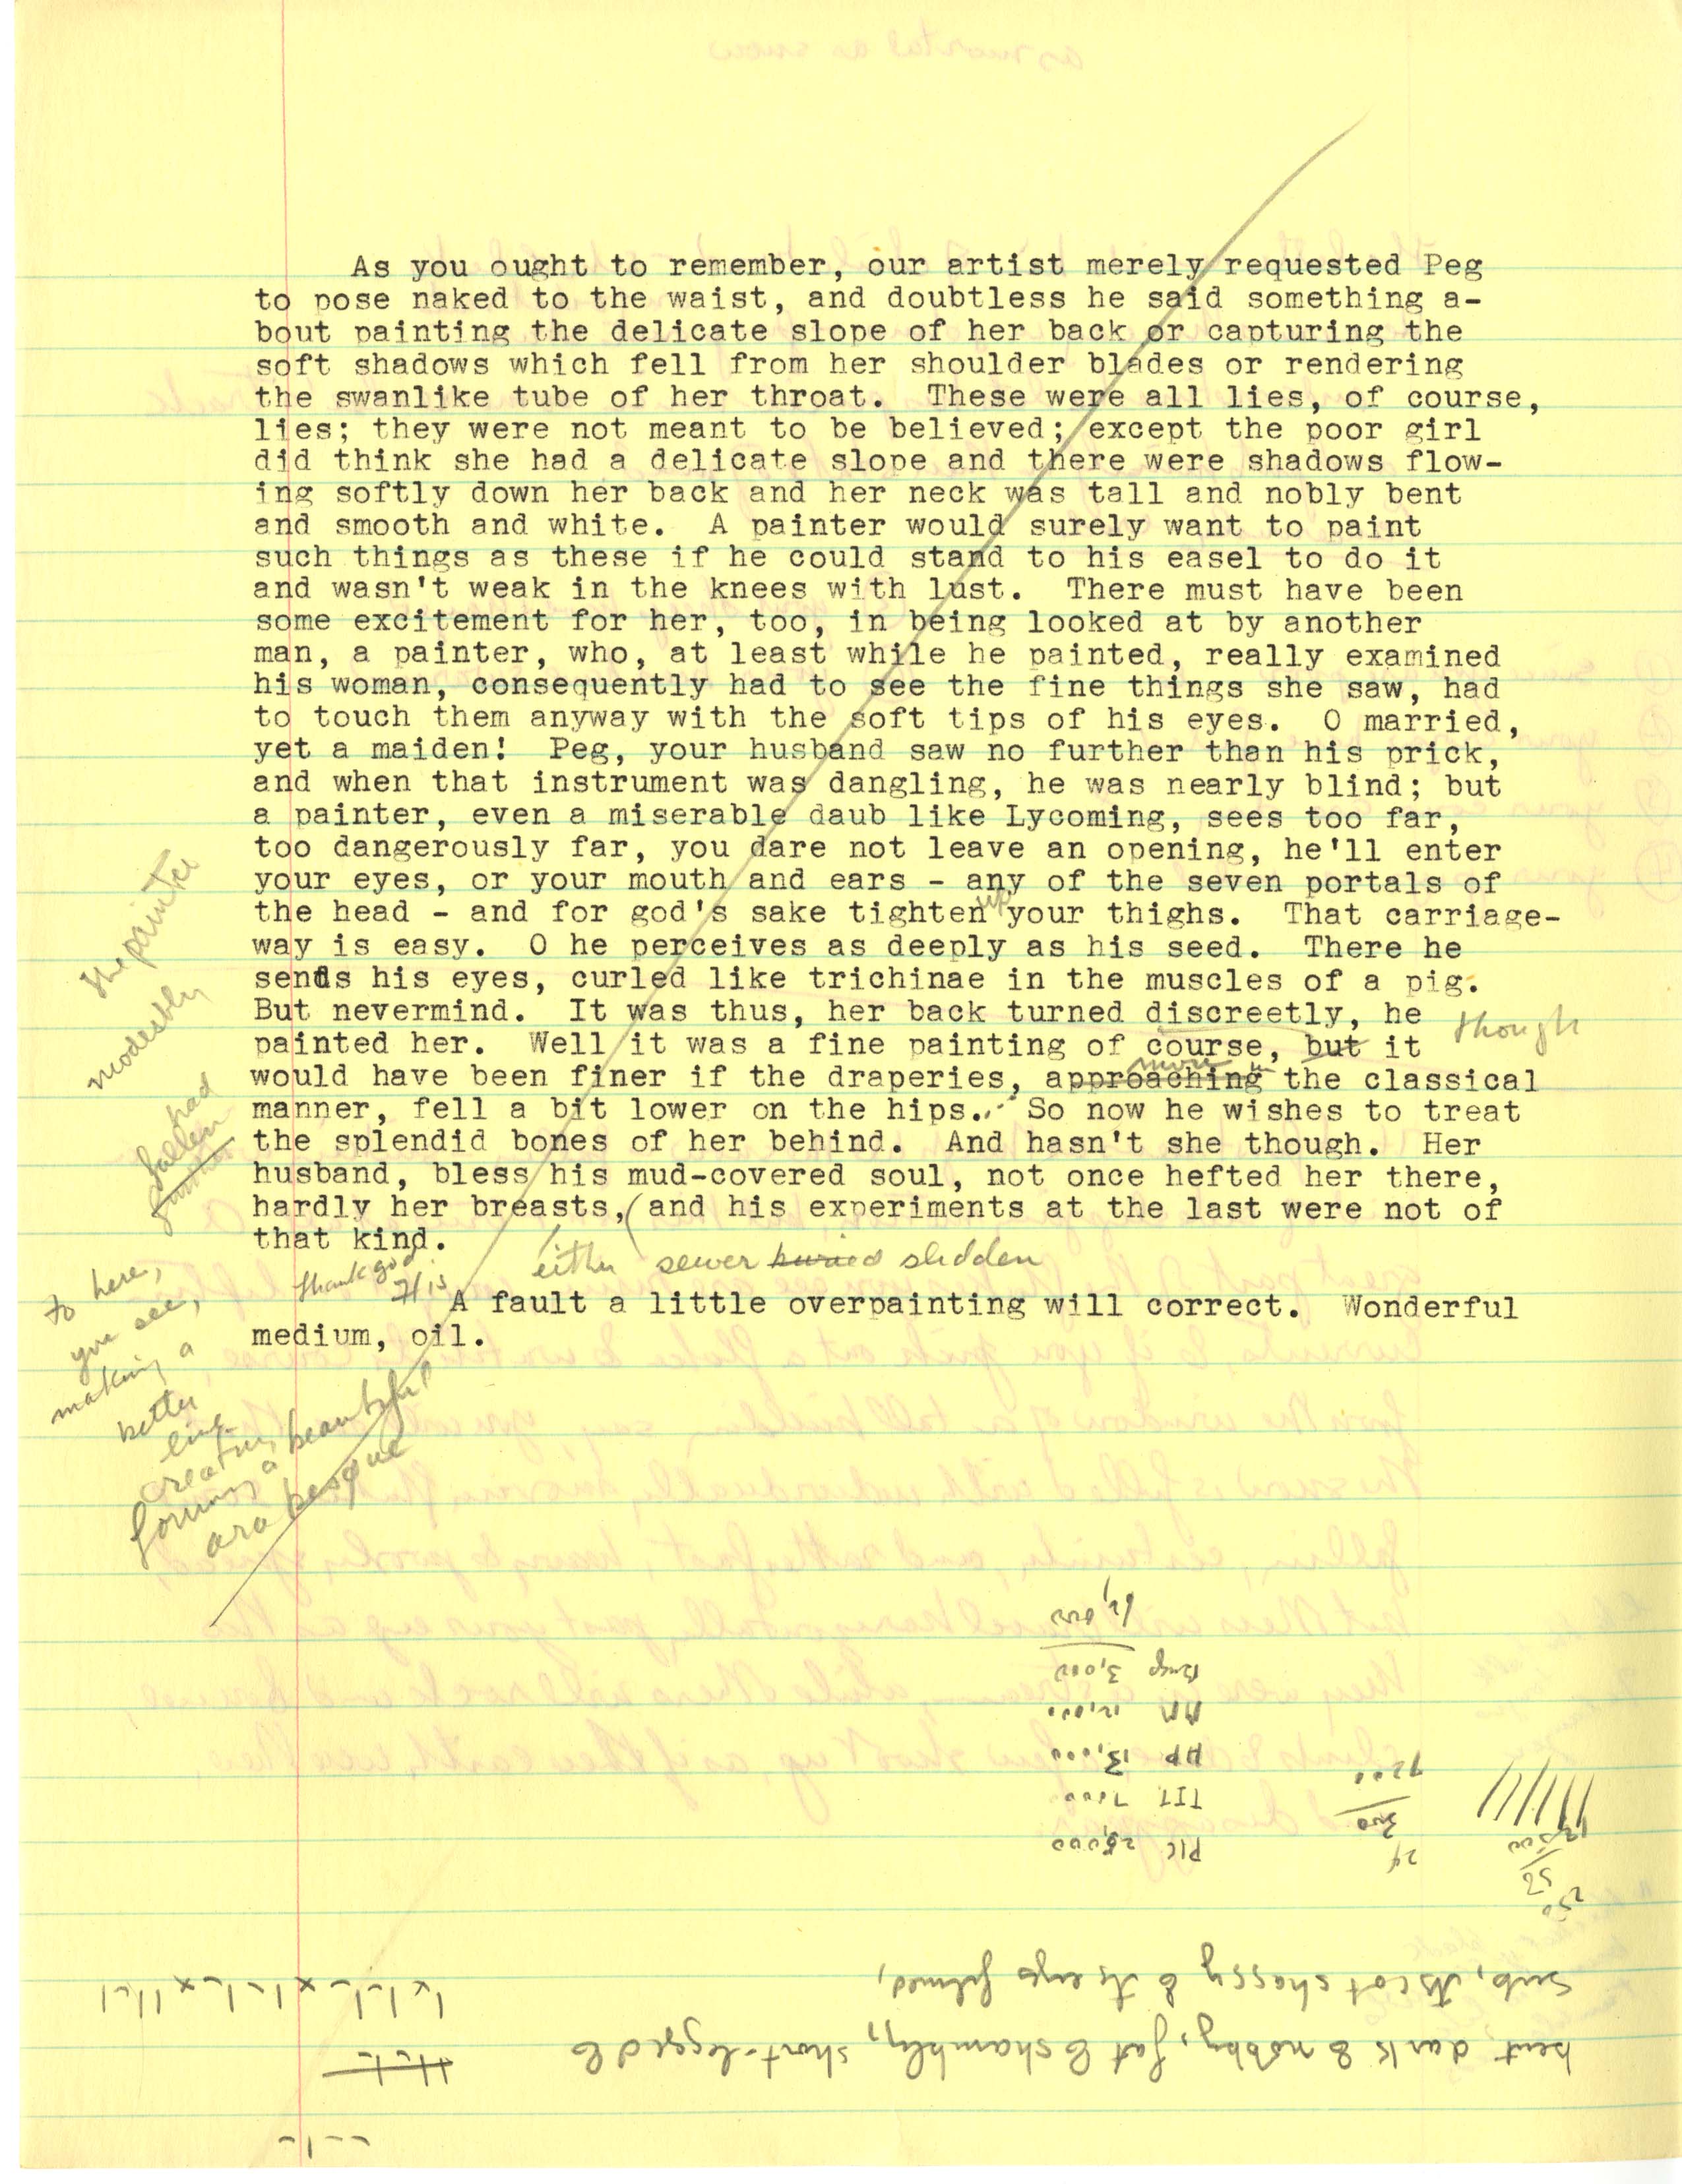 As you ought to remember, our artist merely requested Peg
to pose naked to the waist, and doubtless he said something a-
bout painting the delicate slope of her back or capturing the
soft shadows which fell from her shoulder blades or rendering
the swanlike tube of her throat. These were all lies, of course,
lies; they were not meant to be believed; except the poor girl
did think she had a delicate slope and there were shadows flow-
ing softly down her back and her neck was tall and nobly bent
and smooth and white. A painter would surely want to paint
such things as these if he could stand to his easel to do it
and wasn't weak in the knees with lust. There must have been
some excitement for her, too, in being looked at by another
man, a painter, who, at least while he painted, really examined
his woman, consequently had to see the fine things she saw, had
to touch them anyway with the soft tips of his eyes. O married,
yet a maiden! Peg, your husband saw no further than his prick,
and when that instrument was dangling, he was nearly blind; but
a painter, even a miserable daub like Lycoming, sees too far,
too dangerously far, you dare not leave an opening, he'll enter
your eyes, or your mouth and ears - any of the seven portals of
the head - and for god's sake tighten up your thighs. That carriage-
way is easy. O he perceives as deeply as his seed. There he
sends his eyes, curled like trichinae in the muscles of a pig.
But nevermind. It was thus, her back turned discreetly, he
the painter
modestly
painted her. Well it was a fine painting of course, but it
though
would have been finer if the draperies, approaching the classical
more in
manner, fell a bit lower on the hips. So now he wishes to treat
had
fallen
the splendid bones of her behind. And hasn't she though. Her
husband, bless his mud-covered soul, not once hefted her there,
hardly her breasts, (and his experiments at the last were not of
that kind.
either sewer buried slidden
thank god
It is
A fault a little overpainting will correct. Wonderful
medium, oil.
to here,
you see,
making a
better
line
creating
forming a beautiful
arabesque
bent dark & nobby, fat & shambly, short-legged &
its cot shaggy & its eyes filmed,
PIC 25,000
TIT 7000
HP 13,000
MM 12,000
3,000
24
300
7200
250
50
12500